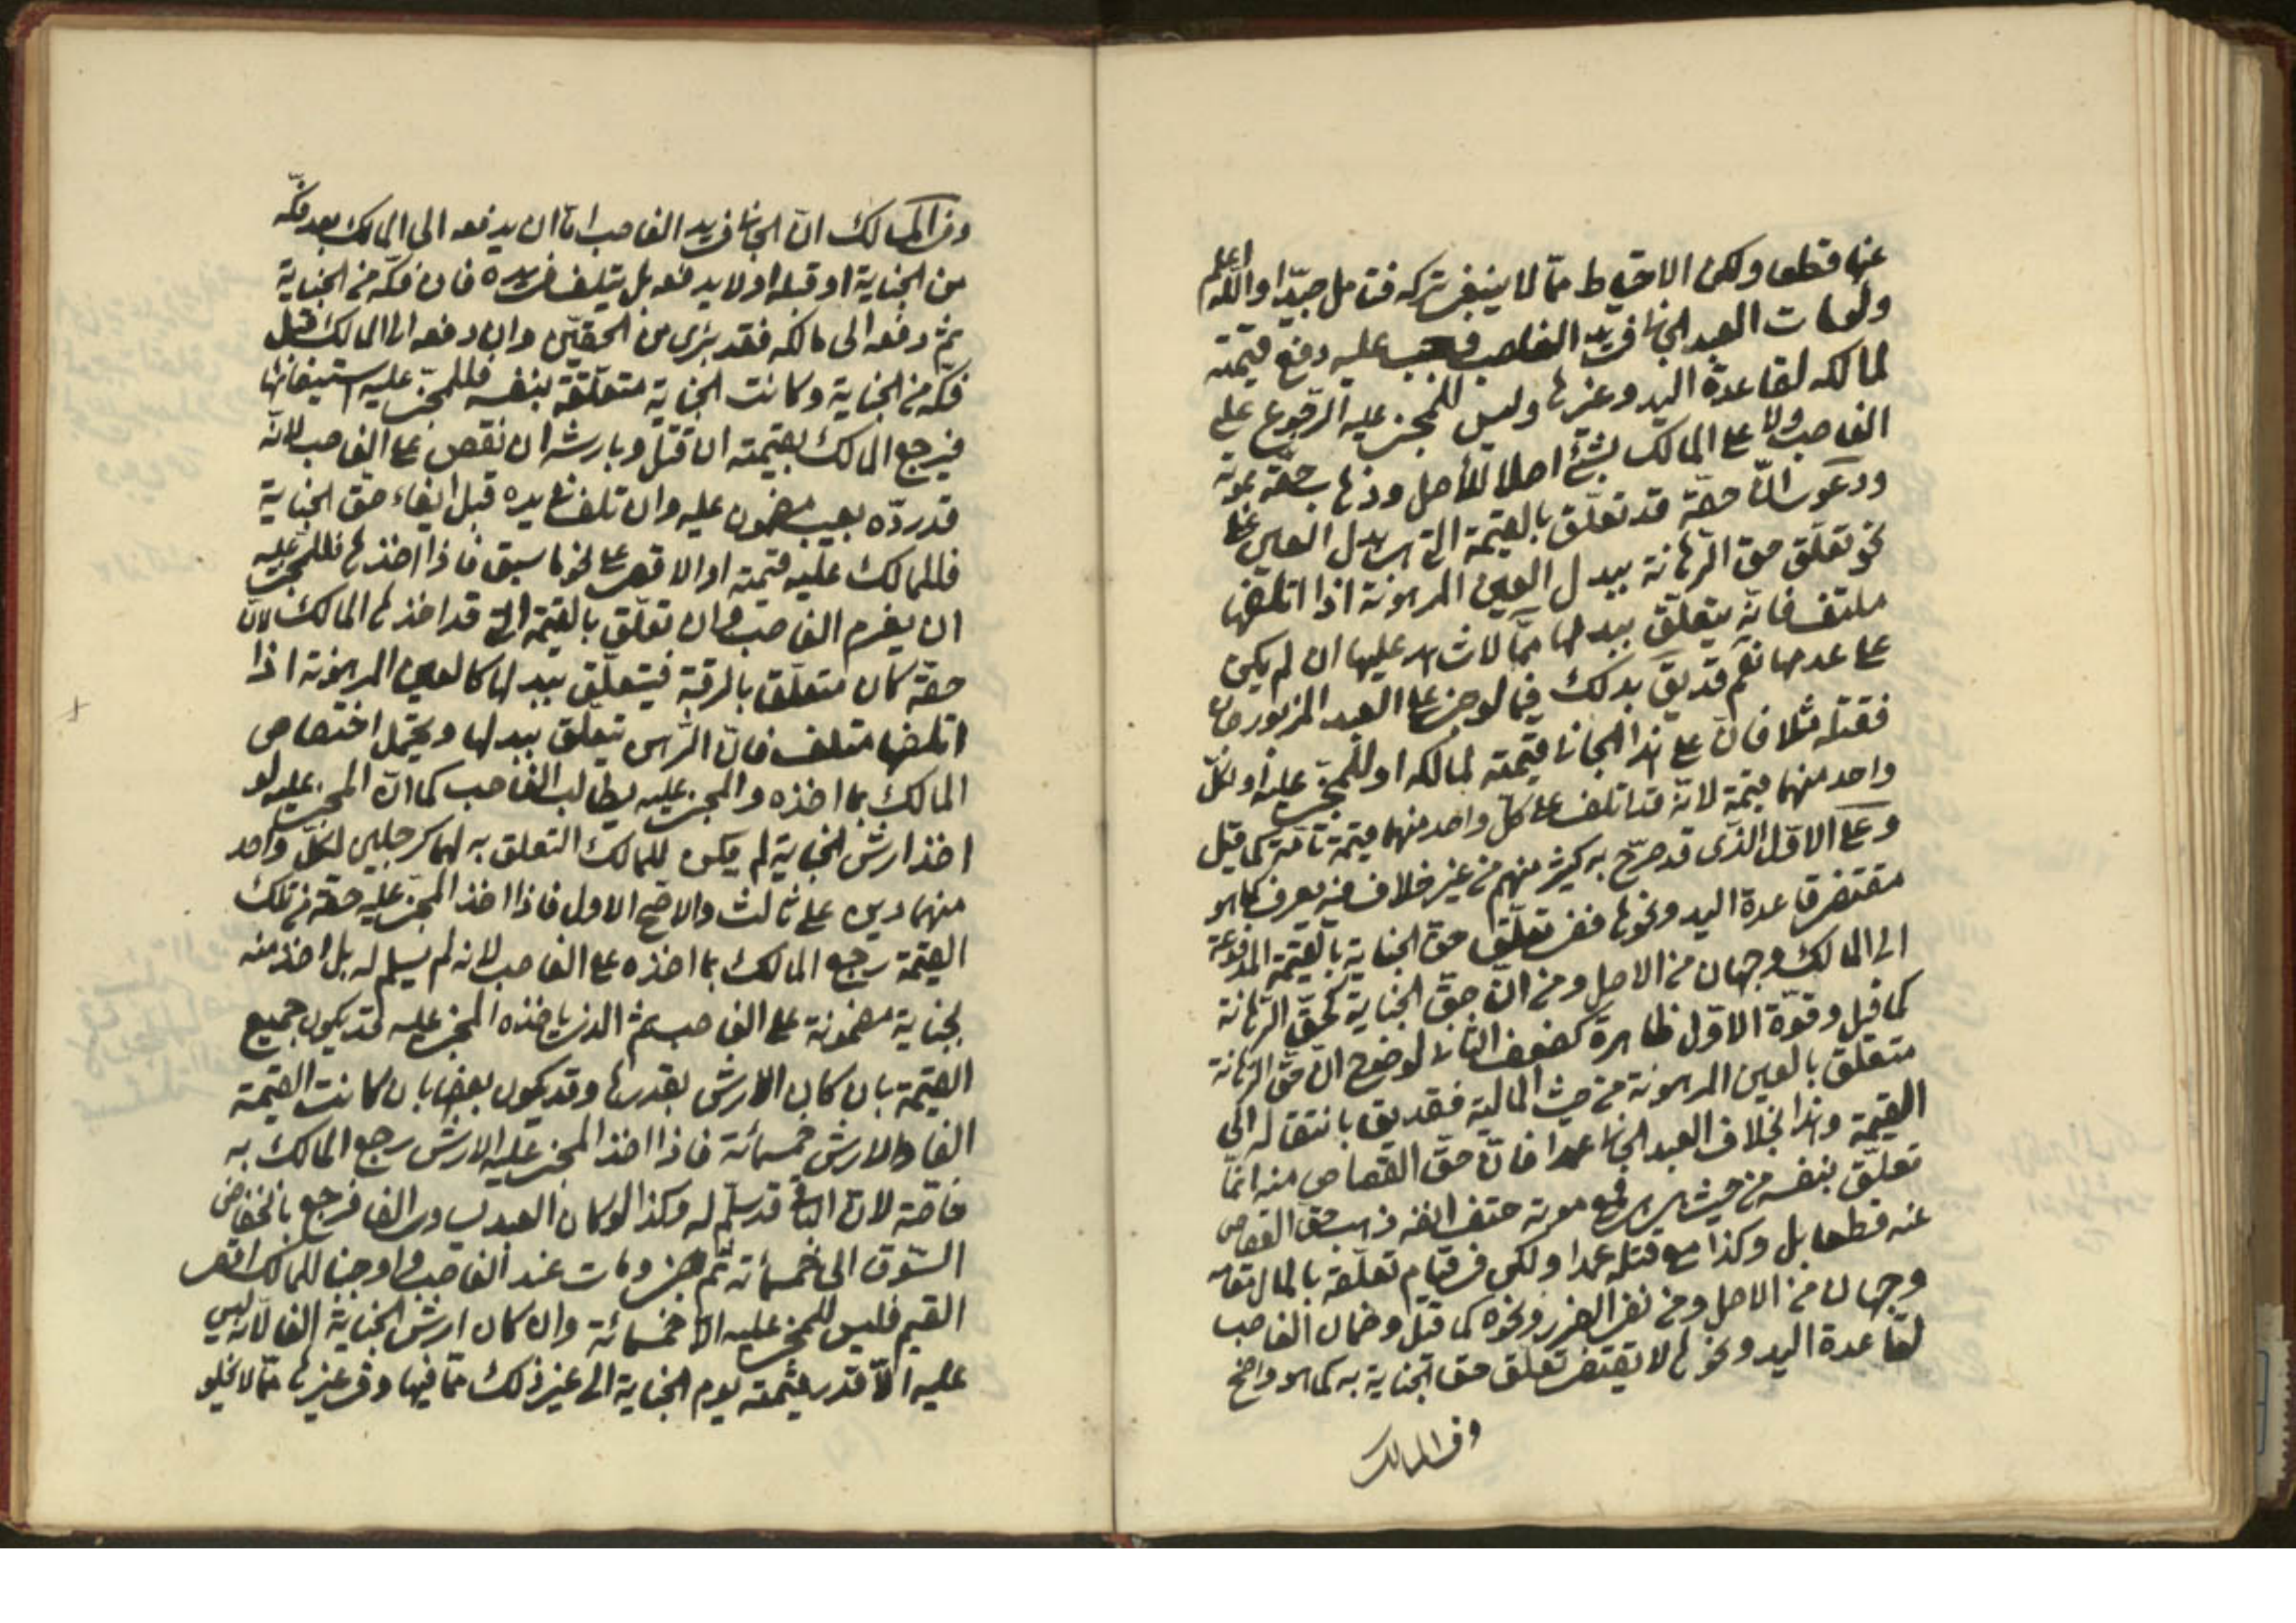 عنها قطعا ولكن الاحتياط ممّا لا ينبغى تركه فتامل جيّدا واللّه اعلم
ولو مات العبد الجانى فى يد الغاصب فيجب عليه دفع قيمته
لمالكه لقاعدة اليد وغيرها وليس للمجنى عليه الرّجوع على
الغاصب ولا على المالك بشئ اصلا للأصل وذهاب حقّه بموته
ودعوى انّ حقّه قد تعلّق بالقيمة التى هى بدل العين على
نحو تعلّق حق الرّهانة ببدل العين المرهونة اذا اتلفها
متلف فانّه يتعلّق ببدلها ممّا لا شاهد عليها ان لم يكن
على عدمها نعم قد يق بذلك فيما لو جنى على العبد المزبور جان
فقتله مثلا فانّ على هذا الجانى قيمته لمالكه او للمجنى عليه او لكلّ
واحد منهما قيمة لانّه قد اتلف على كلّ واحد منهما قيمة تامّة كما قيل
وعلى الاوّل الذى قد صرّح به كثير منهم من غير خلاف فيه يعرف كما هو
مقتضى قاعدة اليد ونحوها ففى تعلّق حق الجناية بالقيمة المدفوعة
الى المالك وجهان من الاصل ومن انّ حقّ الجناية كحقّ الرّهانة
كما قيل وقوّة الاوّل ظاهرة كضعف الثانى لوضوح انّ حقّ الرّهانة
متعلق بالعين المرهونة من حيث المالية فقد يق بانتقاله الى
القيمة وهذا بخلاف العبد الجانى عمدا فانّ حقّ القصاص منه انمّا
تعلّق بنفسه من حيث هى هى فمع موته حتف انفه ذهب حق القصاص
عنه قطعا بل وكذا مع قتله عمدا ولكن فى قيام تعلّقه بالمال مقامه
وجهان من الاصل ومن نفى الضرر ونحوه كما قيل وضمان الغاصب
لقاعدة اليد ونحوها لا يقتضى تعلّق حق الجناية به كما هو واضح
وفى المسالك
وفى المسالك انّ الجانى فى يد الغاصب امّا ان يدفعه الى المالك بعد فكّه
من الجناية او قبله او لا يدفعه بل يتلف فى يده فان فكّه من الجناية
ثم دفعه الى مالكه فقد برئ من الحقّين وان دفعه الى المالك قبل
فكّه من الجناية وكانت الجناية متعلّقة بنفسه فللمجنى عليه استيفائها
فيرجع المالك بقيمته ان قتل وبارشه ان نقص على الغاصب لانّه
قد ردّه بعيب مضمون عليه وان تلف فى يده قبل ايفاء حق الجناية
فللمالك عليه قيمته او الاقصى على نحو ما سبق فاذا اخذها فللمجنى عليه
ان يغرم الغاصب وان تعلّق بالقيمة التى قد اخذها المالك لانّ
حقّه كان متعلّق بالرقبة فيتعلّق ببدلها كالعين المرهونة اذا
اتلفها متلف فانّ الرّهن يتعلّق ببدلها ويحتمل اختصاص
المالك بما اخذه والمجنى عليه يطالب الغاصب كما انّ المجنى عليه لو
اخذ ارش الجناية لم يكن للمالك التعلق به لهما كرجلين لكلّ واحد
منهما دين على ثالث والاصح الاول فاذا اخذ المجنى عليه حقّه من تلك
القيمة رجع المالك بما اخذه على الغاصب لانه لم يسلم له بل اخذ منه
بجناية مضمونة على الغاصب ثم الذى ياخذه المجنى عليه قد يكون جميع
القيمة بان كان الارش بقدرها وقد يكون بعضها بان كانت القيمة
الفا والارش خمسمائة فاذا اخذ المجنى عليه الارش رجع المالك به
خاصّة لانّ الباقى قد سلّم له وكذا لو كان العبد يساوى الفا فرجع بانخفاض
السّوق الى خمسمائة ثم جنى ومات عند الغاصب واوجبنا للمالك اقصى
القيم فليس للمجنى عليه الّا خمسمائة وان كان ارش الجناية الفا لانّه ليس
عليه الّا قدر قيمته يوم الجناية الى غير ذلك ممّا فيها وفى غيرها ممّا لا يخلو